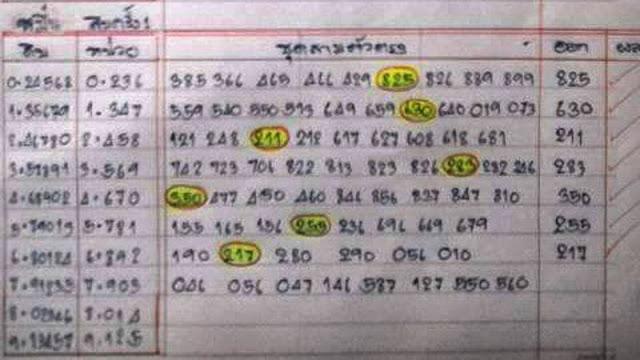 สิบ หน่วย ชุดสามตัวตรง ออก
0.24568 0.236 385 366 465 466 429 825 826 889 899 825
1.35679 1.347 559 540 550 593 649 659 630 640 019 073 630
2.46780 2.458 121 248 211 212 617 627 608 618 681 211
3.57891 3.569 742 723 706 822 813 823 826 283 232 246 283
4.68902 4.670 350 477 450 460 846 856 837 847 810 350
5.79013 5.781 155 165 156 255 236 696 669 679 255
6.80124 6.892 190 217 280 290 056 010 217
7.91235 7.903 046 056 047 146 587 127 550 560
8.02346 8.014
9.13457 9.125